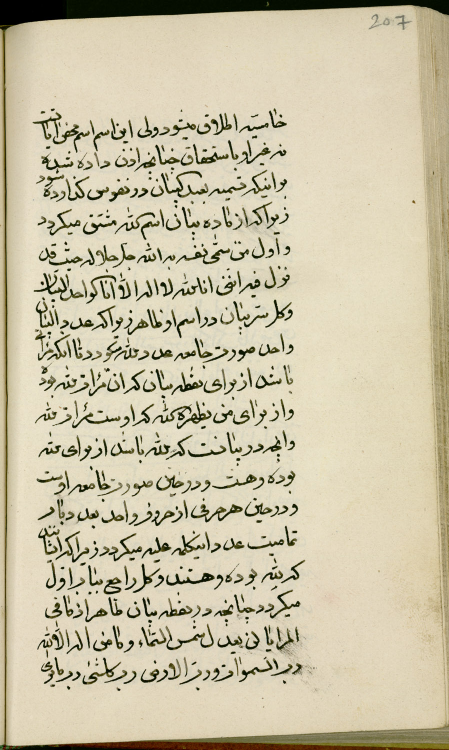 207
خاسیه اطلاق میشود ولی این اسم اسم مخفی ایات
نه غیر او باستحقاق چنانچه اذن داده شده
بر اینکه تسمیه بعبد کنان در نفوس گذارده شود
زیرا که از ماده بیان اسم کله مشتق میگردد
و اول من سمی نفسه به الله جل جلاله حیث قد
نزل فیه اننی انا الله لا اله الا انا کواحد البیان
و کل سر بیان در اسم او ظاهر زیرا که عدد البیان
واحد صورت جامعه عدد لله میگردد تا انکه
باشد از برای نقطه بیان که ان مرات لله بوده
و از برای من یظهره الله که اوست مرات لله
وانچه در بیانست که لله باشد از برای الله
بوده وهست و در حین صورت جامعه اوست
و در حین هر حرفی از حروف واحد بعدد باب
تمامیت عدد اینکلمه علیه میگردد زیرا که
که لله بوده وهستند و کل راجع بباب اول
میگردد چنانچه در نقطه بیان ظاهر از مافی
المرایا لن یعدل شمس السماء و مامن اله الا الله
رب السموات ورب الارض رب کلشئ رب مایری